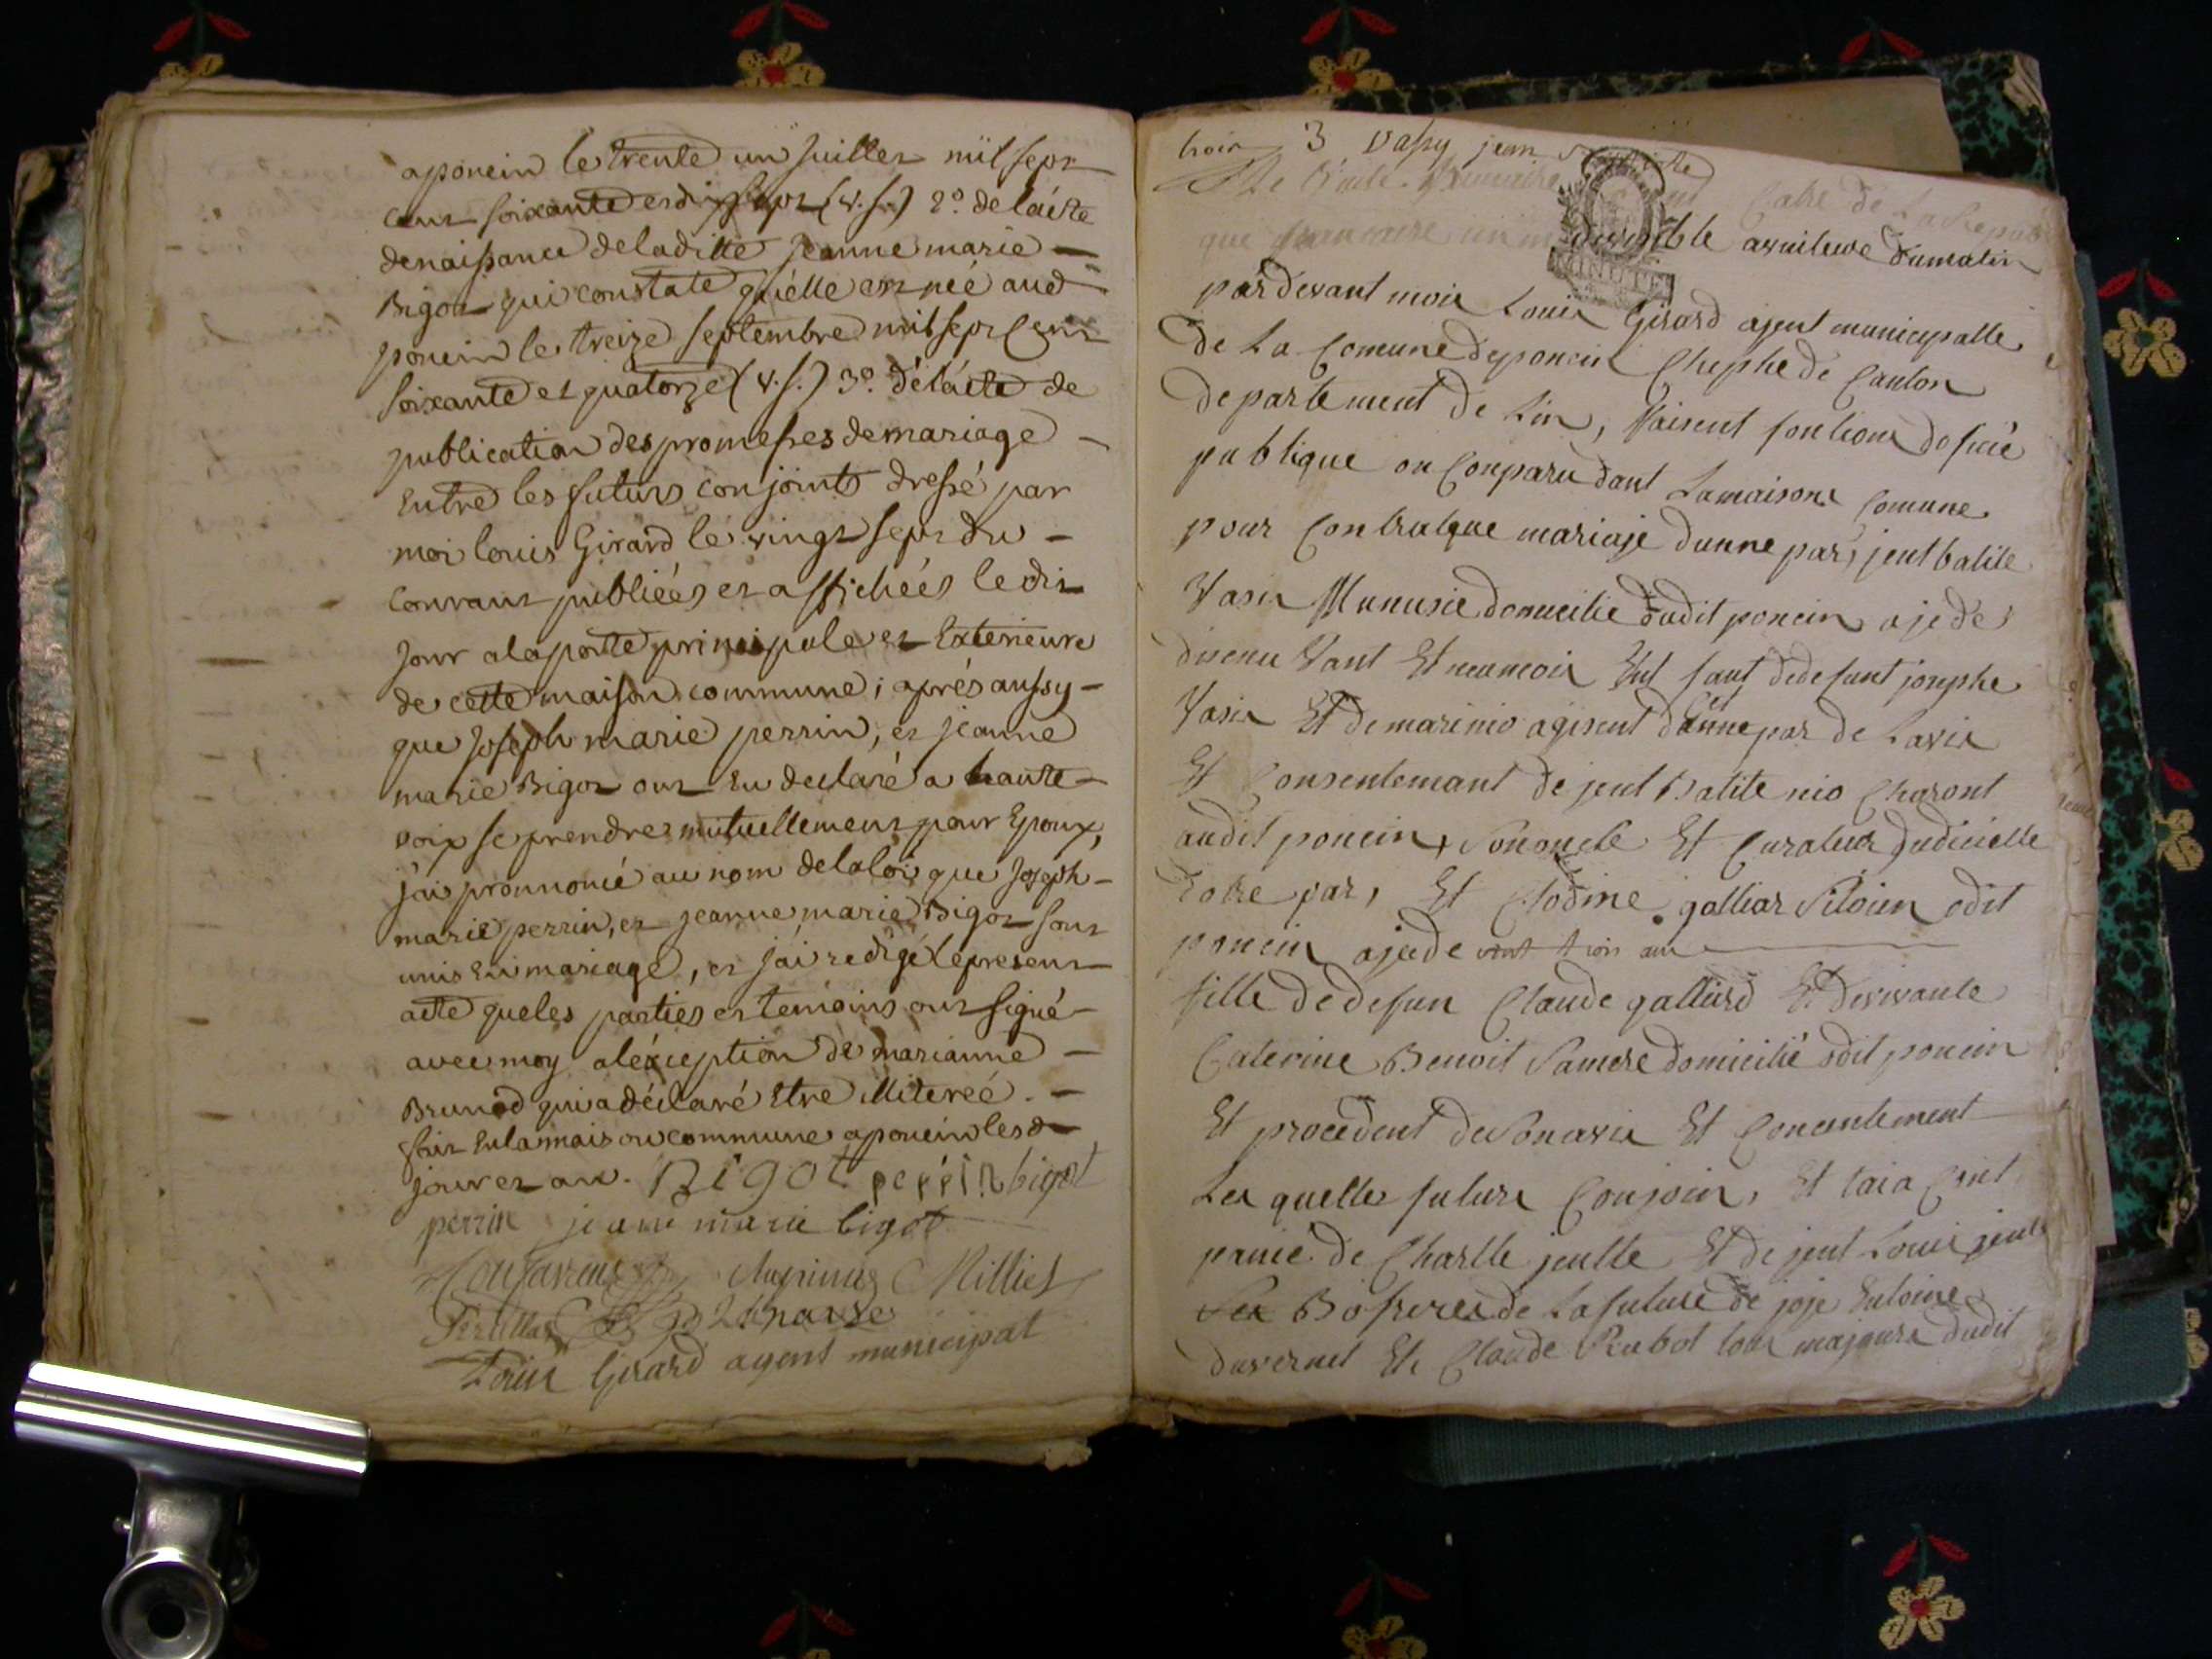 aponcin le trente un Juillet mil sept
cent soixante et dix sept (v.s.) 2º. de l'acte
denaissance deladitte jeanne marie —
Bigot qui constate qu'elle est née aud
poncin le treize septembre mil sept Cent
soixante et quatorze (v.s.) 3º. dé l'acte de
publication des promesses demariage —
Entre les futurs conjoints dressé par
moi louis Girard le vingt sept du —
Courant publiées et affichées le dit
Jour alaporte principale et Exterieure
de cette maison commune; aprés aussy —
que Joseph marie perrin, et jeanne
marie Bigot ont Eu declaré a haute —
voix se prendre mutuellement pour Epoux,
j'ai prononcé au nom delaloi que Joseph —
marie perrin, et jeanne marie Bigot sont
unis En mariage, et j'ai redigé le present
acte queles parties et temoins ont signé —
avec moy aléxception de marianne —
Brunod qui a déclaré Etre illiterée. —
fait Enlamaison commune aponcin lesd —
jour et an. BIGOT perrin bigot
perrin jeanne marie bigot
Milliet
Louis Girard agent municipal
troix 3 Vassy jean
Catre de La Repub
que divisible avuileure dumatin
pardevant moix Louis Girard ajent municipalle
De La Comune deponcin Chephe de Canton
departement de Lin, faisent fontions dofisié
publique on Conparu dant Lamaisont Comune
pour Contratque mariaje dunne par, jentbatite
Vasix Menusie domicilié dudit poncin aje de
disneu Vant Et neumoix Ent fant dedefunt josephe
Vasix Et demarinio agisent dunne par de Lavix
Et Consentemant de jent Batite nio Charont
audit poncin, Sononcle Et Curateur Judicielle
Dotre par, Et Clodine galliar Sitoien odit
poncin ajede vent troi an
fille dedefun Claude galliard Et devivante
Caterine Benoit Samere domicilié odit poncin
Et procedent deSonavix Et Concentement
Les quelle future Conjoin, Et tai a Conet
panie de Charlle jentte Et de jent Louis jente
Ses Bofreres de Lafuture de joje Entoine
duvernet Et Claude Rubot tous majeurs dudit